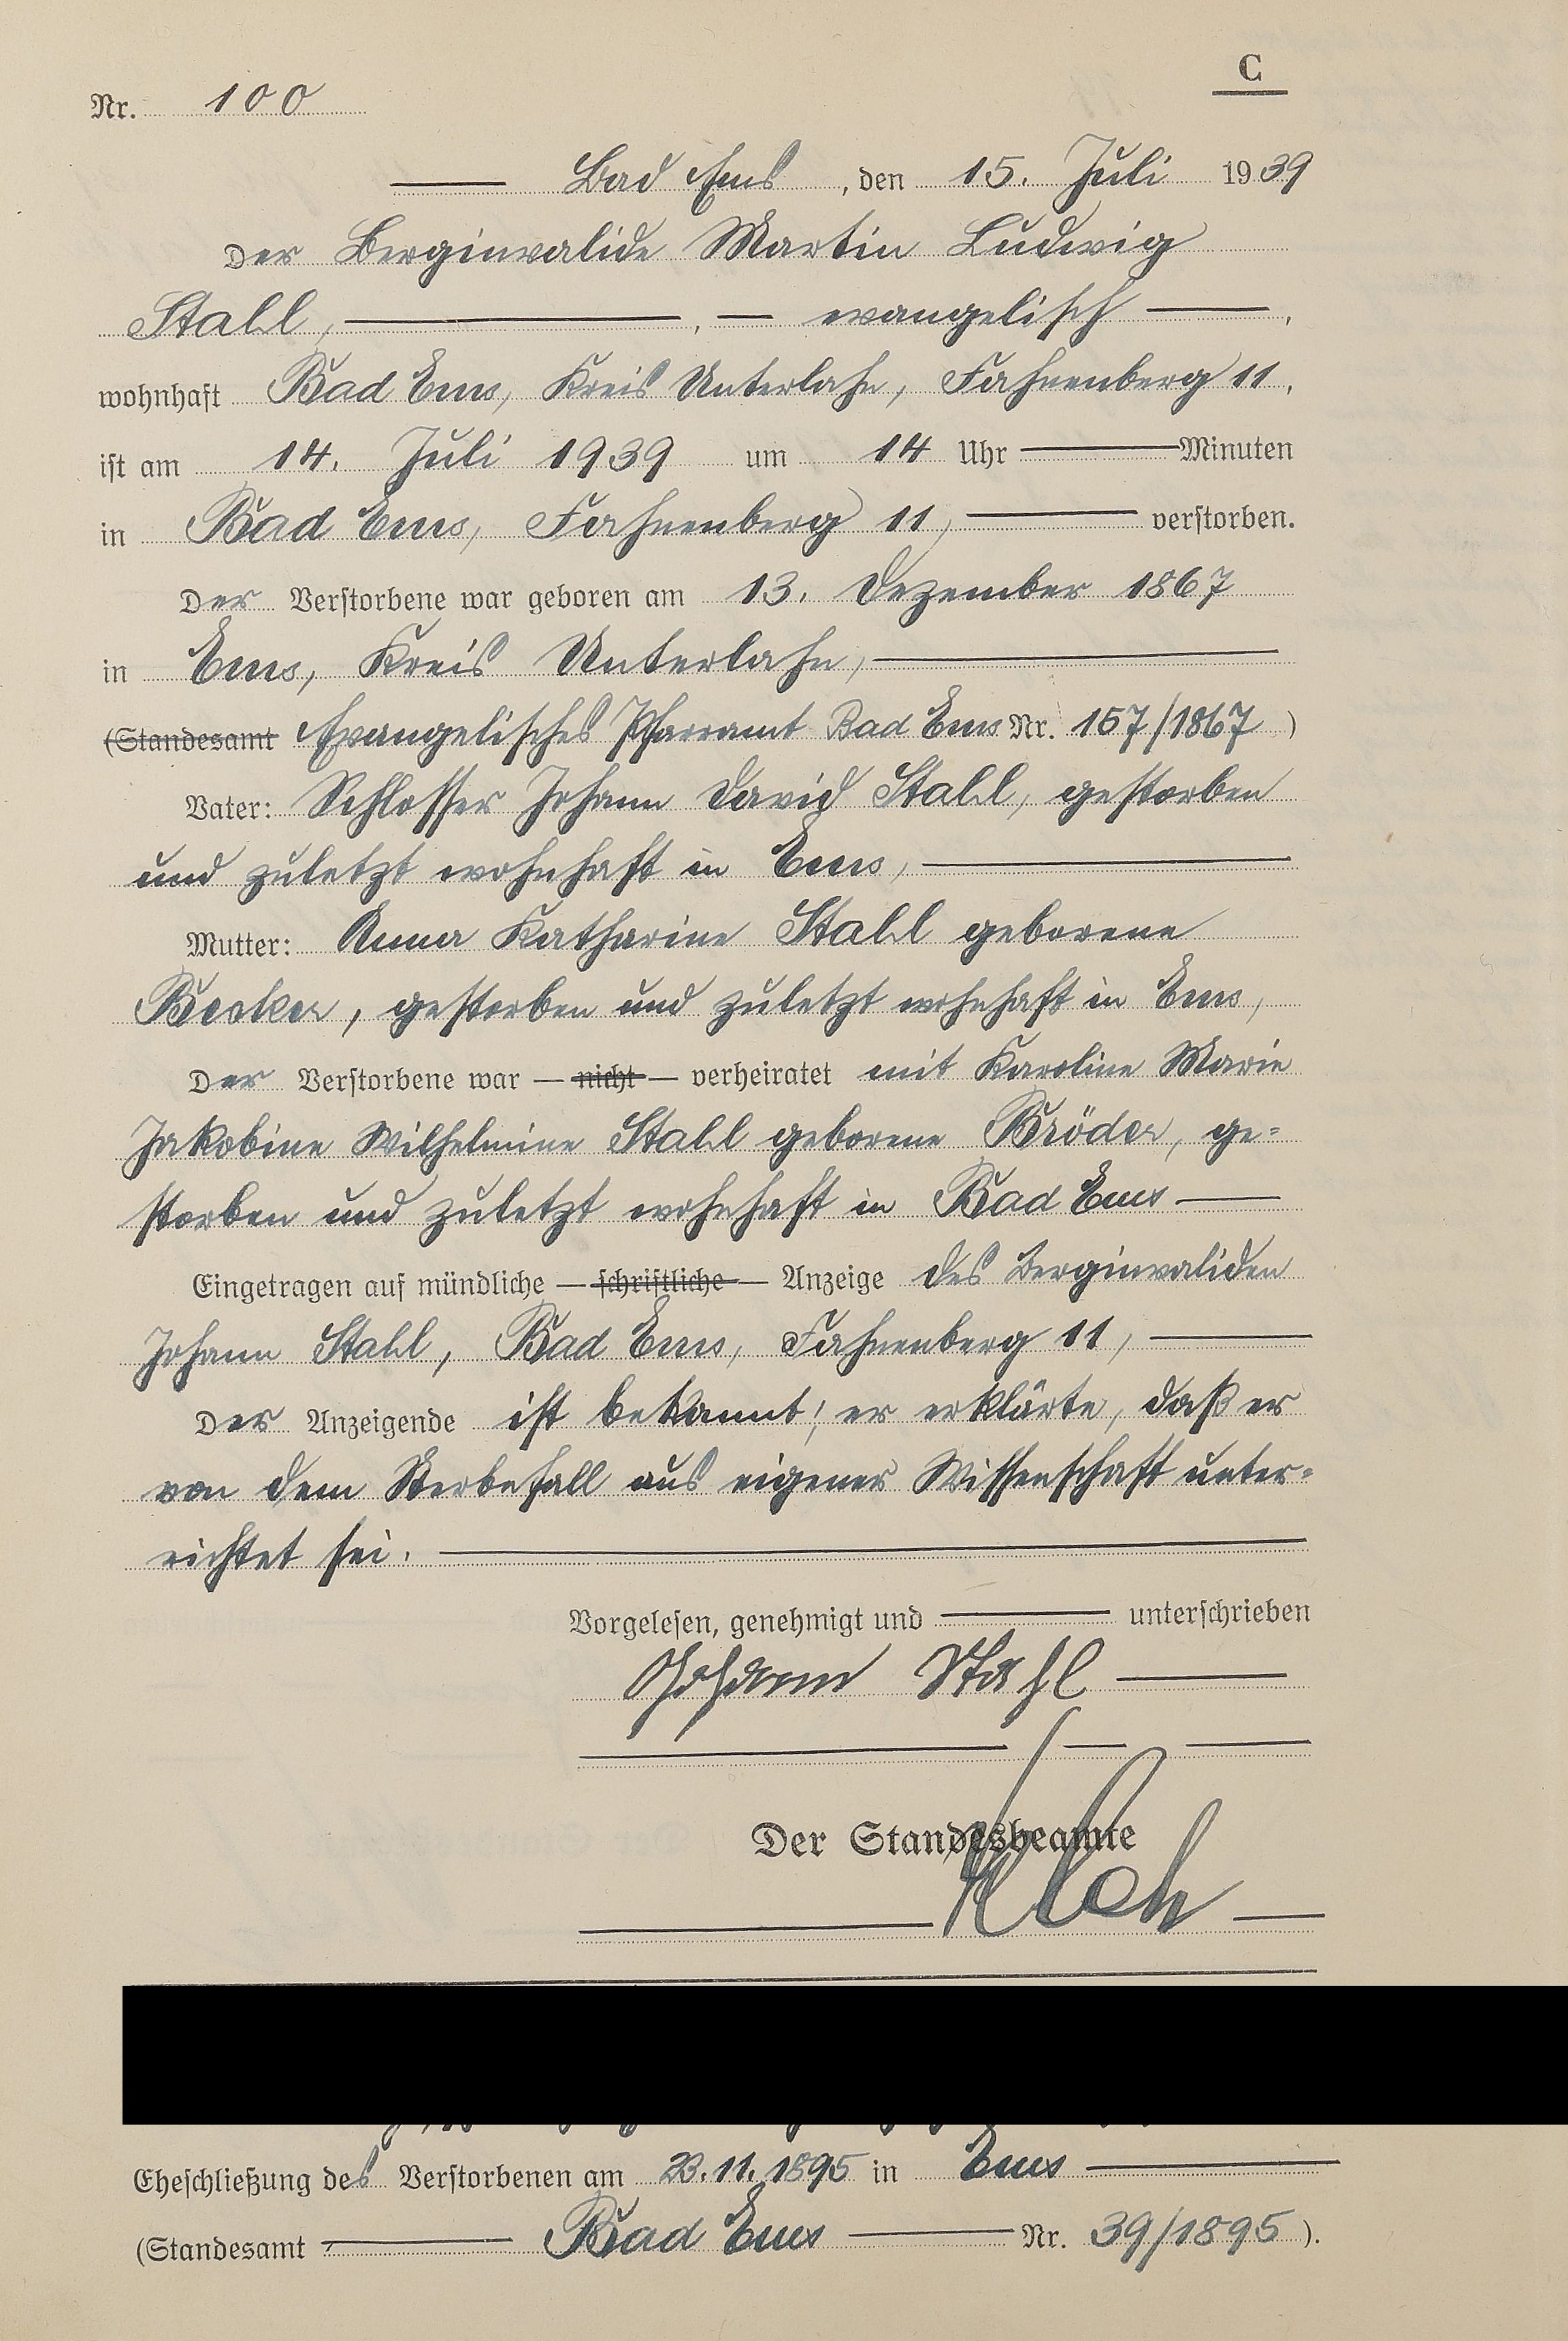 C
Nr. 100
Bad Ems, den 15. Juli 1939
Der Berginvalide Martin Ludwig
Stahl, evangelisch,
wohnhaft Bad Ems, Kreis Unterlahn, Fahnenberg 11,
ist am 14. Juli 1939 um 14 Uhr Minuten
in Bad Ems, Fahnenberg 11, verstorben.
Der Verstorbene war geboren am 13. Dezember 1867
in Ems, Kreis Unterlahn,
(Standesamt Evangelisches Pfarramt Bad Ems Nr. 157/1867)
Vater: Schlosser Johann David Stahl, gestorben
und zuletzt wohnhaft in Ems,
Mutter: Anna Katharine Stahl geborene
Becker, gestorben und zuletzt wohnhaft in Ems,
Der Verstorbene war — nicht — verheiratet mit Karoline Marie
Jakobine Wilhelmine Stahl geborene Bröder, ge=
storben und zuletzt wohnhaft in Bad Ems
Eingetragen auf mündliche — schriftliche — Anzeige des Berginvaliden
Johann Stahl, Bad Ems, Fahnenberg 11,
Der Anzeigende ist bekannt; er erklärte, daß er
von dem Sterbefall aus eigener Wissenschaft unter=
richtet sei.
Vorgelesen, genehmigt und unterschrieben
Johann Stahl
Der Standesbeamte
Eheschließung des Verstorbenen am 23.11.1895 in Ems
(Standesamt Bad Ems Nr. 39/1895).